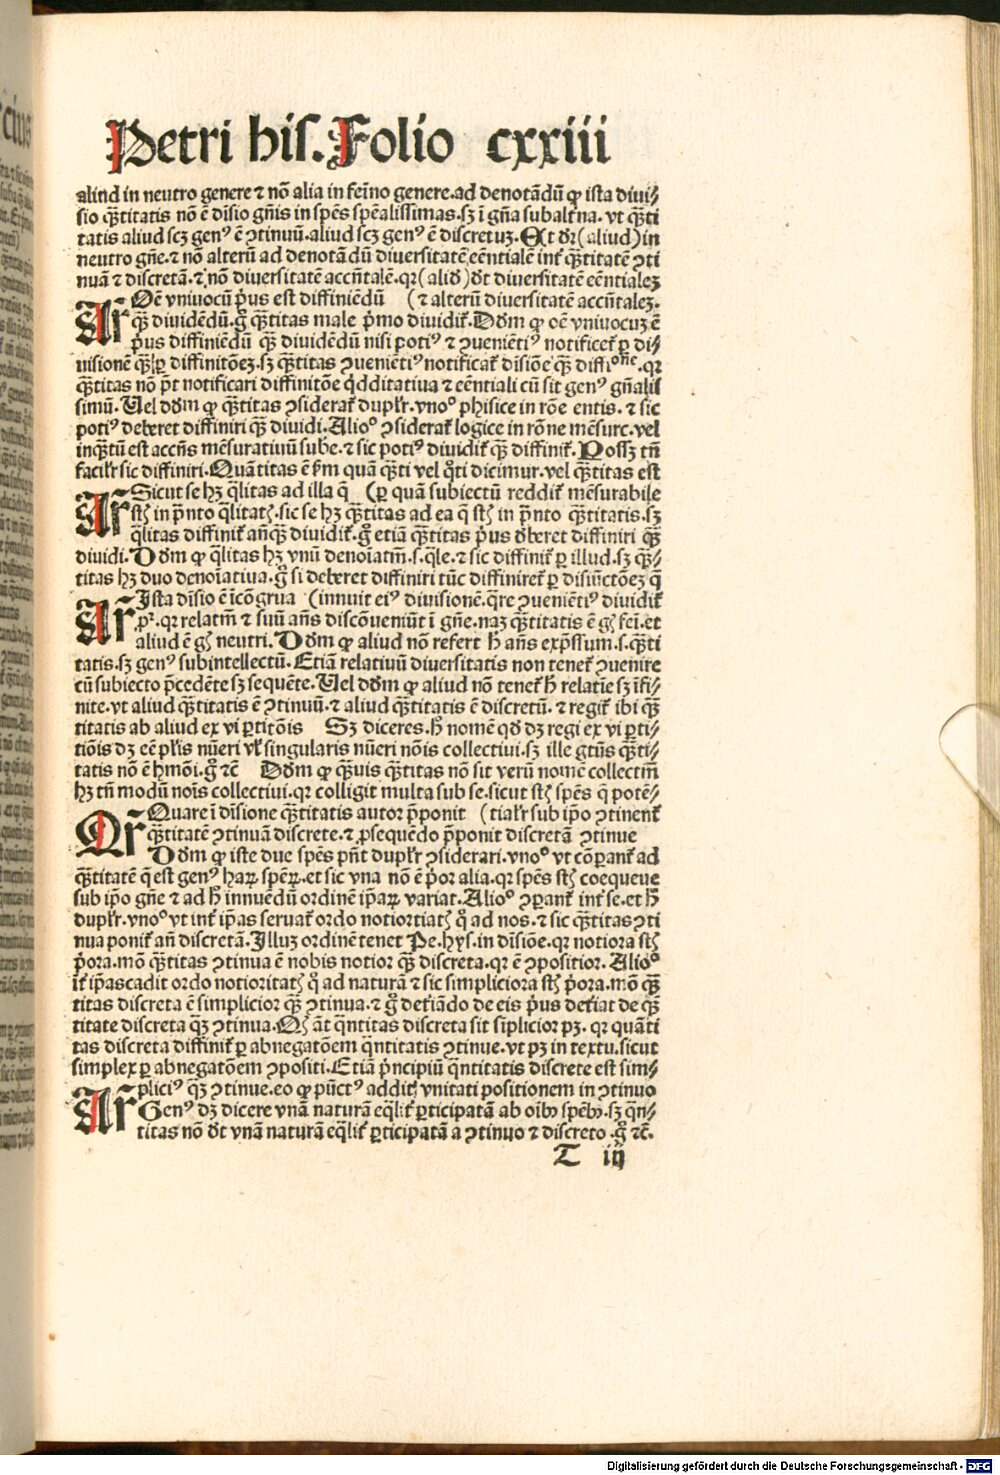 Petri his. Folio cxxiii
aliud in neutro genere ⁊ nō alia in feı̄no genere. ad denotādū ꝙ ista diui⸗
sio q̄ꝫtitatis nō ē dı̄sio gn̄is in spēs spēalissimas. sꝫ ı̄ gn̄a subaltʼna. vt q̄ꝫti
tatis aliud scꝫ genꝰ ē ↄtinuū. aliud scꝫ genꝰ ē discretuꝫ. Et dr̄ (aliud) in
neutro gn̄e. ⁊ nō alterū ad denotādū diuersitatē eēntialē intʼ q̄ꝫtitatē ↄti
nuā ⁊ discretā. ⁊ nō diuersitatē accn̄talē. qr (aliđ) đt diuersitatē eēntialeꝫ
Ar̄ Oē vniuocū p̄us est diffiniēdū (⁊ alterū diuersitatē accn̄taleꝫ.
q̄ꝫ diuidēdū. gͦ q̄ꝫtitas male p̄mo diuidit̄. Dđm ꝙ oē vniuocuꝫ ē
p̄us diffiniēdū q̄ꝫ diuidēdū nisi potiꝰ ⁊ ↄueniētiꝰ notificet̄ ꝑ di⸗
uisionē q̄ꝫ ꝑ diffinitōeꝫ. sꝫ q̄ꝫtitas ↄueniētiꝰ notificat̄ disiōe q̄ꝫ diffiᵒⁿᵉ. qr
q̄ꝫtitas nō p̄t notificari diffinitōe q̇dditatiua ⁊ eēntiali cū sit genꝰ gn̄alis
simū. Uel dđm ꝙ q̄ꝫtitas ↄsiderat̄ duplr̄. vnoᵒ phisice in rōe entis. ⁊ sic
potiꝰ deberet diffiniri q̄ꝫ diuidi. Alioᵒ ↄsiderat̄ logice in rōne mēsure. vel
inq̄ꝫtū est accn̄s mēsuratiuū sube. ⁊ sic potiꝰ diuidit̄ q̄ꝫ diffinit̄. Possꝫ tn̄
facilr̄ sic diffiniri. Quātitas ē fʼm quā q̄ꝫti vel q̊ti dicimur. vel q̄ꝫtitas est
Ar̄ Sicut se hꝫ q̄litas ad illa q̄ (ꝑ quā subiectū reddit̄ mēsurabile
st̄ in p̄nto q̄litatꝭ. sic se hꝫ q̄ꝫtitas ad ea q̄ st̄ in p̄nto q̄ꝫtitatis. sꝫ
q̄litas diffinit̄ an̄q̄ꝫ diuidit̄. gͦ etiā q̄ꝫtitas p̄us đberet diffiniri q̄ꝫ
diuidi. Dđm ꝙ q̄litas hꝫ vnū denoı̄atm̄. s. q̄le. ⁊ sic diffinit̄ ꝑ illud. sꝫ q̄ꝫ⸗
titas hꝫ duo denoı̄atiua. gͦ si deberet diffiniri tūc diffiniret̄ ꝑ disiūctōeꝫ q̄
Ar̄ Ista dı̄sio ē ı̄cōgrua (innuit eiꝰ diuisionē. q̄re ↄueniētiꝰ diuidit̄
pꝛ̄. qr relatm̄ ⁊ suū an̄s discōueniūt ı̄ gn̄e. naꝫ q̄ꝫtitatis ē gn̄ꝭ fei. et
aliud ē gn̄ꝭ neutri. Dđm ꝙ aliud nō refert h̄ an̄s exp̄ssum. s. q̄ꝫti
tatis. sꝫ genꝰ subintellectū. Etiā relatiuū diuersitatis non tenet̄ ↄuenire
cū subiecto p̄cedēte sꝫ sequēte. Uel dđm ꝙ aliud nō tenet̄ h̄ relatı̄e sꝫ ı̄fi⸗
nite. vt aliud q̄ꝫtitatis ē ↄtinuū. ⁊ aliud q̄ꝫtitatis ē discretū. ⁊ regit̄ ibi q̄ꝫ
titatis ab aliud ex vi ꝑtitōis Sꝫ diceres. h̄ nomē qđ dꝫ regi ex vi ꝑti⸗
tiōis dꝫ eē pl̄is nūeri vl̄ singularis nūeri nōis collectiui. sꝫ ille gtūs q̄ꝫti⸗
tatis nō ē hmōi. gͦ ⁊c̄ Dđm ꝙ q̄ꝫuis q̄ꝫtitas nō sit verū nomē collectm̄
hꝫ tn̄ modū noı̄s collectiui. qr colligit multa sub se. sicut st̄ spēs q̄ potē⸗
Qr̄ Quare ı̄ dı̄sione q̄ꝫtitatis autor p̄ponit (tialr̄ sub ip̄o ↄtinent̄
q̄ꝫtitatē ↄtinuā discrete. ⁊ ꝓsequēdo p̄ponit discretā ↄtinue
Dđm ꝙ iste due spēs pn̄t duplr̄ ↄsiderari. vnoᵒ vt cōꝑant̄ ad
q̄ꝫtitatē q̄ est genꝰ haꝝ spēꝝ. et sic vna nō ē p̄or alia. qr spēs st̄ coequeue
sub ip̄o gn̄e ⁊ ad h̄ innuēdū ordinē ip̄aꝝ variat. Alioᵒ ↄꝑant̄ int̄ se. et h̄
duplr̄. vnoᵒ vt int̄ ip̄as seruat̄ ordo notioritatꝭ q̊ ad nos. ⁊ sic q̄ꝫtitas ↄti
nua ponit̄ an̄ discretā. Illuꝫ ordinē tenet Pe. hys. in dı̄siōe. qr notiora st̄
p̄ora. mō q̄ꝫtitas ↄtinua ē nobis notior q̄ꝫ discreta. qr ē ↄpositior. Alioᵒ
int̄ ip̄as cadit ordo notioritatꝭ q̊ ad naturā ⁊ sic simpliciora st̄ p̄ora. mō q̄ꝫ
titas discreta ē simplicior q̄ꝫ ↄtinua. ⁊ gͦ det̄iādo de eis p̄us det̄iat de q̄ꝫ
titate discreta q̄ꝫ ↄtinua. Qꝭ āt q̄ntitas discreta sit sı̄plicior pꝫ. qr quāti
tas discreta diffinit̄ ꝑ abnegatōem q̄ntitatis ↄtinue. vt pꝫ in textu. sicut
simplex ꝑ abnegatōem ↄpositi. Etiā p̄ncipiū q̄ntitatis discrete est sim⸗
Ar̄ pliciꝰ q̄ꝫ ↄtinue. eo ꝙ pūctꝰ addit vnitati positionem in ↄtinuo
Genꝰ dꝫ dicere vnā naturā eq̄lit̄ ꝑticipatā ab oı̄bꝰ spēbꝰ. sꝫ q̄n⸗
titas nō đt vnā naturā eq̄lit̄ ꝑticipatā a ↄtinuo ⁊ discreto. gͦ ⁊c̄.
T iij
Digitalisierung gefördert durch die Deutsche Forschungsgemeinschaft - DFG